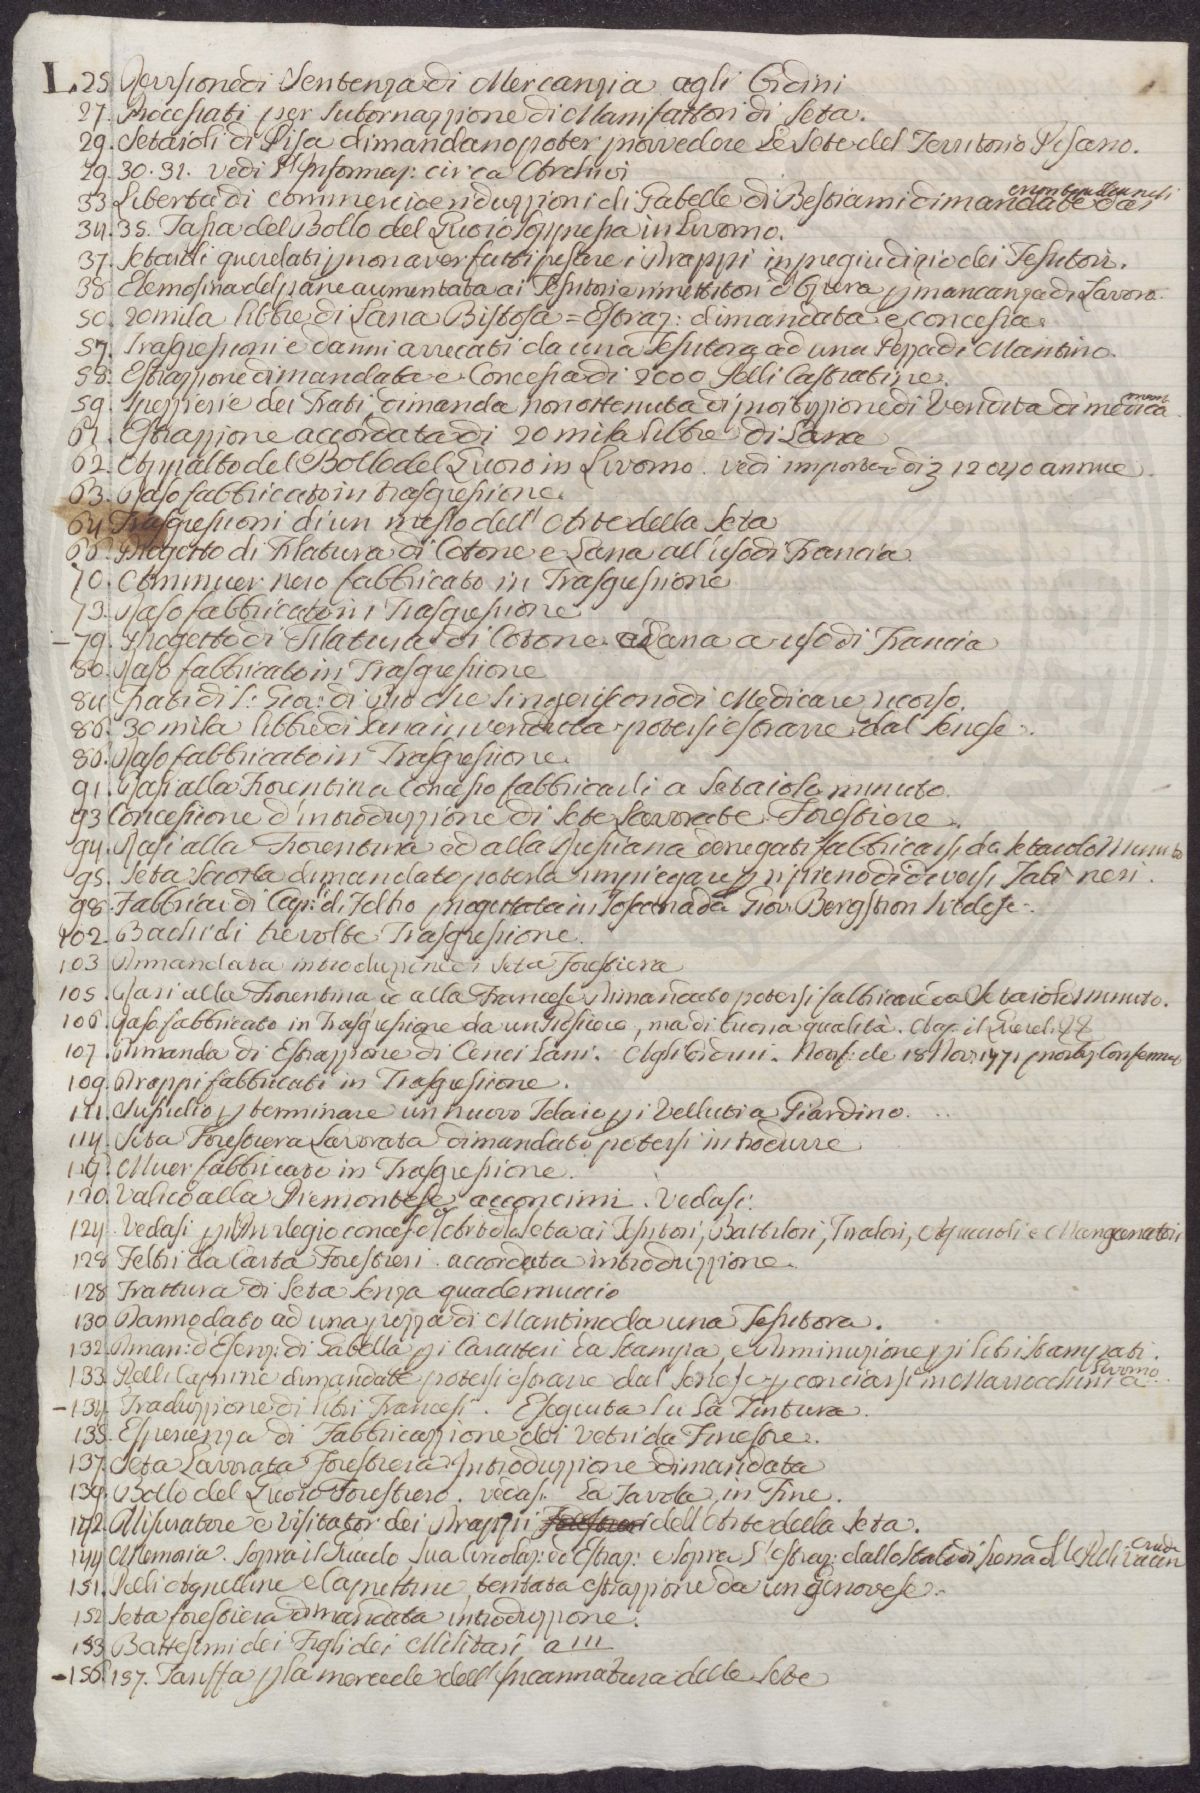 L. 25. Revisione di Sentenza di Mercanzia agli Ordini
27. Processati per subornazzione di Manifattori di Seta.
29. Setaioli di Pisa dimandano poter provvedere le Sete del Territorio Pisano.
29. 30. 31. vedi Informaz: circa Archivi
33 Libertà di commercio e riduzzioni di Gabelle di Bestiami dimandate dai
34. 35. Tassa del Bollo del Quoio soppressa in Livorno.
37. Setaioli querelati p non aver fatti pesare i Drappi in pregiudizio dei Tesutori.
38. Elemosina del pane aumentata ai Tesutori e rimettitori d'Opera p mancanza di Lavoro.
50. 20 mila libbre di Lana Bistosa = Estraz: dimandata e concessa.
57. Trasgressioni e danni arrecati da una Tesutora ad una Pezza di Mantino.
58. Estrazzione dimandata e Concessa di 2000 Pelli Castratine.
59. Spezzierie dei Frati, dimanda non ottenuta di proibizzione di Vendita di medicam
61. Estrazzione accordata di 20 mila libbre di Lana
62. Appalto del Bollo del Quoio in Livorno. vedi importar di 12040 annue.
63. Raso fabbricato in trasgressione.
64 Trasgressioni di un messo dell'Arte della Seta
66. Progetto di Filatura di Cotone e Lana all'uso di Francia.
70. Ammuer nero fabbricato in Trasgressione
73. Raso fabbricato in Trasgressione
- 79. Progetto di Filatura di Cotone e Lana a uso di Francia
80. Raso fabbricato in Trasgressione
84. Frati di S: Gio: di Dio che s'ingeriscono di Medicare ricorso.
86. 30 mila libbre di Lana invenduta potersi estrarre dal Senese.
80. Raso fabbricato in Trasgressione.
91. Rasi alla Fiorentina Concesso fabbricarli a Setaiolo minuto.
93 Concessione d'introduzzione di Sete Lavorate Forestiere.
94. Rasi alla Fiorentina ed alla Prussiana denegati fabbricarsi da Setaiolo Minuto
95. Seta Scorta dimandato poterla impiegare p ripieno di diversi Tabì neri.
98. Fabbrica di Cap:li di Feltro progettata in Toscana da Gio: Bergstron Svedese.
102. Bachi di tre volte Trasgressione.
103 Dimandata introduzione di Seta forestiera
105. Rasi alla Fiorentina e alla Francese Dimandato potersi fabbricare da Setaiolo Minuto.
106. Raso fabbricato in Trasgressione da un Tesitore, ma di buona qualità.
107. Dimanda di Estrazzione di Cenci Lani. Agli Ordini. 18 Nov: 1771
109. Drappi fabbricati in Trasgressione.
111. Sussidio p terminare un nuovo Telaio p i Velluti a Giardino.
114. Seta Forestiera Lavorata dimandato potersi introdurre
119. Muer fabbricato in Trasgressione.
120. Valico alla Piemontese acconcimi. Vedasi:
124. Vedasi p Privilegio concesso dall'Arte della Seta ai Tesitori, Battilori, Tiralori, Acquaioli e Manganatori
128 Feltri da Carta Forestieri. accordata introduzzione.
128 Trattura di Seta senza quadernuccio
130 Danno dato ad una pezza di Mantino da una Tesutora.
132. Diman: d'Esenz: di Gabella p i Caratteri da Stampa, e Diminuzione p i libri stampati.
133. Pelli Caprine dimandate potersi estrarre dal Senese p conciarsi in Marrocchini a Livorno.
- 134. Traduzzione di libri Francesi. Eseguita su la Tintura.
135. Esperienza di Fabbricazzione dei Vetri da Finestre.
137. Seta Lavorata Forestiera Introduzzione dimandata
139. Bollo del Quoio Forestiero. vedasi la Tavola in Fine.
142. Misuratore e Visitator dei Drappi dell'Arte della Seta.
144 Memoria. sopra il Guado sua circolaz: ed estraz: e sopra l'estraz: dallo Stato di Siena delle Pelli Vacin crude
151. Pelli Agnelline e Caprettine, tentata estrazzione da un Genovese.
152 Seta forestiera dimandata introduzzione.
153 Battesimi dei Figli dei Militari a 111
- 156. 157. Tariffa p la mercede dell'Incannatura delle Sete